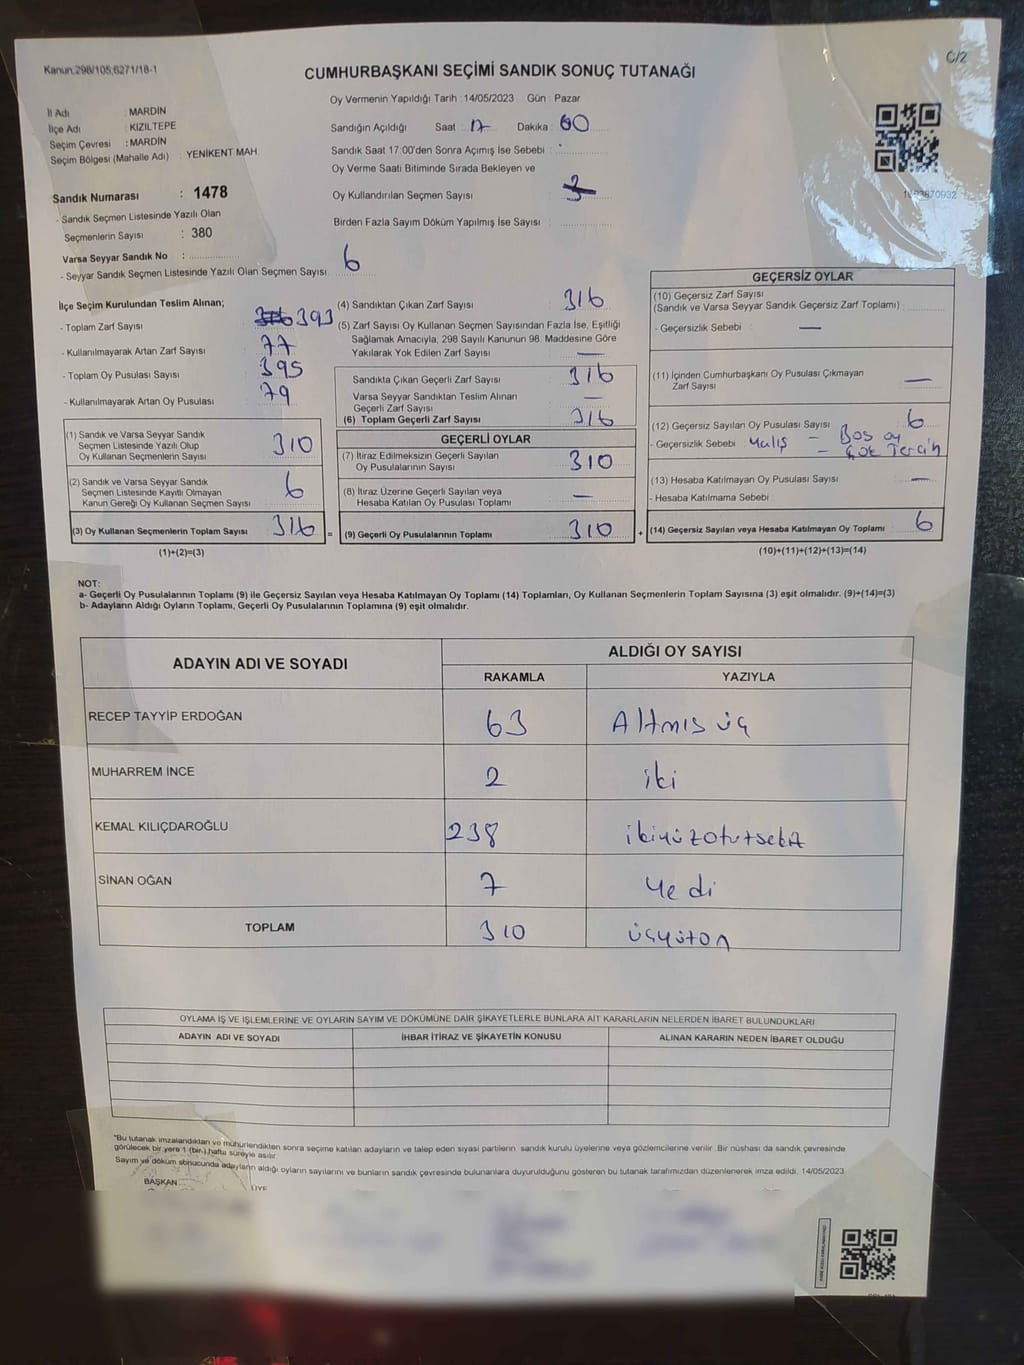 Kanun:298/105;6271/18-1
C/2
CUMHURBAŞKANI SEÇİMİ SANDIK SONUÇ TUTANAĞI
İl Adı : MARDİN
İlçe Adı : KIZILTEPE
Seçim Çevresi : MARDİN
Seçim Bölgesi (Mahalle Adı) : YENİKENT MAH.
Sandık Numarası : 1478
- Sandık Seçmen Listesinde Yazılı Olan
Seçmenlerin Sayısı : 380
Varsa Seyyar Sandık No :
- Seyyar Sandık Seçmen Listesinde Yazılı Olan Seçmen Sayısı : 6
Oy Vermenin Yapıldığı Tarih : 14/05/2023 Gün : Pazar
Sandığın Açıldığı Saat : 17 Dakika : 00
Sandık Saat 17:00'den Sonra Açımış İse Sebebi :
Oy Verme Saati Bitiminde Sırada Bekleyen ve
Oy Kullandırılan Seçmen Sayısı :
Birden Fazla Sayım Döküm Yapılmış İse Sayısı :
İlçe Seçim Kurulundan Teslim Alınan;
- Toplam Zarf Sayısı : 393
- Kullanılmayarak Artan Zarf Sayısı : 77
- Toplam Oy Pusulası Sayısı : 395
- Kullanılmayarak Artan Oy Pusulası : 79
(1) Sandık ve Varsa Seyyar Sandık
Seçmen Listesinde Yazılı Olup
Oy Kullanan Seçmenlerin Sayısı : 310
(2) Sandık ve Varsa Seyyar Sandık
Seçmen Listesinde Kayıtlı Olmayan
Kanun Gereği Oy Kullanan Seçmen Sayısı : 6
(3) Oy Kullanan Seçmenlerin Toplam Sayısı : 316 =
(1)+(2)=(3)
(4) Sandıktan Çıkan Zarf Sayısı : 316
(5) Zarf Sayısı Oy Kullanan Seçmen Sayısından Fazla İse, Eşitliği
Sağlamak Amacıyla, 298 Sayılı Kanunun 98. Maddesine Göre
Yakılarak Yok Edilen Zarf Sayısı : —
Sandıkta Çıkan Geçerli Zarf Sayısı : 316
Varsa Seyyar Sandıktan Teslim Alınan
Geçerli Zarf Sayısı : —
(6) Toplam Geçerli Zarf Sayısı : 316
GEÇERLİ OYLAR
(7) İtiraz Edilmeksizin Geçerli Sayılan
Oy Pusulalarının Sayısı : 310
(8) İtiraz Üzerine Geçerli Sayılan veya
Hesaba Katılan Oy Pusulası Toplamı : —
(9) Geçerli Oy Pusulalarının Toplamı : 310 +
GEÇERSİZ OYLAR
(10) Geçersiz Zarf Sayısı
(Sandık ve Varsa Seyyar Sandık Geçersiz Zarf Toplamı) :
- Geçersizlik Sebebi : —
(11) İçinden Cumhurbaşkanı Oy Pusulası Çıkmayan
Zarf Sayısı : —
(12) Geçersiz Sayılan Oy Pusulası Sayısı : 6
- Geçersizlik Sebebi : Yalış - Boş oy
- Çok Tercih
(13) Hesaba Katılmayan Oy Pusulası Sayısı : —
- Hesaba Katılmama Sebebi :
(14) Geçersiz Sayılan veya Hesaba Katılmayan Oy Toplamı : 6
(10)+(11)+(12)+(13)=(14)
NOT:
a- Geçerli Oy Pusulalarının Toplamı (9) ile Geçersiz Sayılan veya Hesaba Katılmayan Oy Toplamı (14) Toplamları, Oy Kullanan Seçmenlerin Toplam Sayısına (3) eşit olmalıdır. (9)+(14)=(3)
b- Adayların Aldığı Oyların Toplamı, Geçerli Oy Pusulalarının Toplamına (9) eşit olmalıdır.
ADAYIN ADI VE SOYADI
ALDIĞI OY SAYISI
RAKAMLA YAZIYLA
RECEP TAYYİP ERDOĞAN 63 Altmış üç
MUHARREM İNCE 2 iki
KEMAL KILIÇDAROĞLU 238 ikiyüzotutseka
SİNAN OĞAN 7 Yedi
TOPLAM 310 üçyüton
OYLAMA İŞ VE İŞLEMLERİNE VE OYLARIN SAYIM VE DÖKÜMÜNE DAİR ŞİKAYETLERLE BUNLARA AİT KARARLARIN NELERDEN İBARET BULUNDUKLARI
ADAYIN ADI VE SOYADI İHBAR İTİRAZ VE ŞİKAYETİN KONUSU ALINAN KARARIN NEDEN İBARET OLDUĞU
*Bu tutanak imzalandıktan ve mühürlendikten sonra seçime katılan adayların ve talep eden siyasi partilerin sandık kurulu üyelerine veya gözlemcilerine verilir. Bir nüshası da sandık çevresinde
görülecek bir yere 1 (bir) hafta süreyle asılır.
Sayım ve döküm sonucunda adayların aldığı oyların sayılarını ve bunların sandık çevresinde bulunanlara duyurulduğunu gösteren bu tutanak tarafımızdan düzenlenerek imza edildi. 14/05/2023
BAŞKAN ÜYE